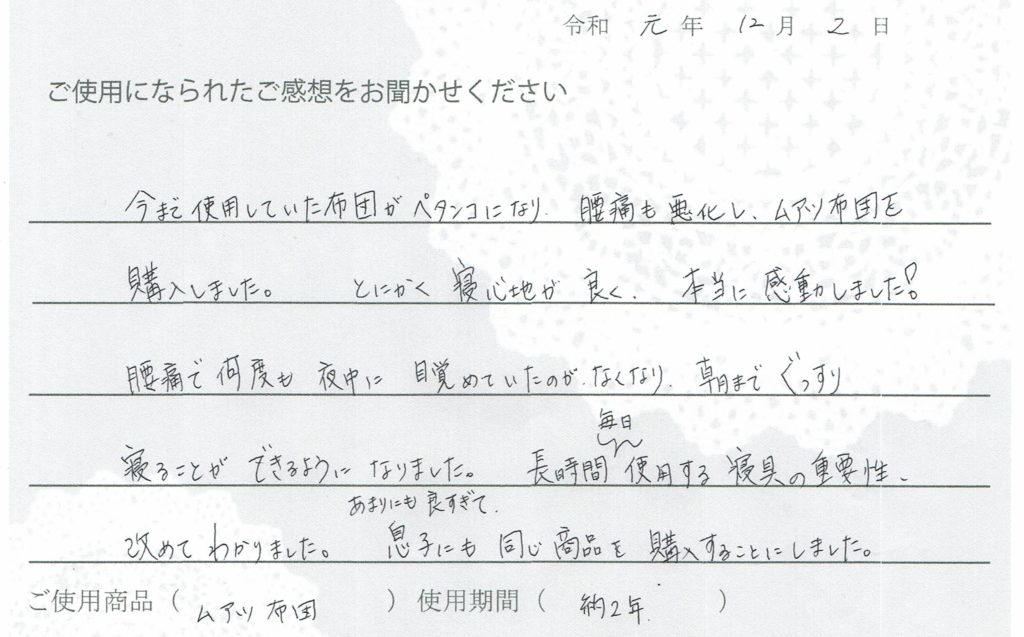 令和 元 年 12 月 2 日
ご使用になられたご感想をお聞かせください
今まで使用していた布団がペタンコになり、腰痛も悪化し、ムアツ布団を
購入しました。 とにかく寝心地が良く、本当に感動しました!
腰痛で何度も夜中に目覚めていたのが、なくなり、朝までぐっすり
毎日
寝ることができるようになりました。 長時間使用する寝具の重要性、
あまりにも良すぎて、
改めてわかりました。 息子にも同じ商品を購入することにしました。
ご使用商品( ムアツ布団 ) 使用期間( 約2年 )